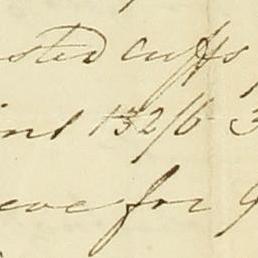 sted cuffs
int 132/6 3
eve for